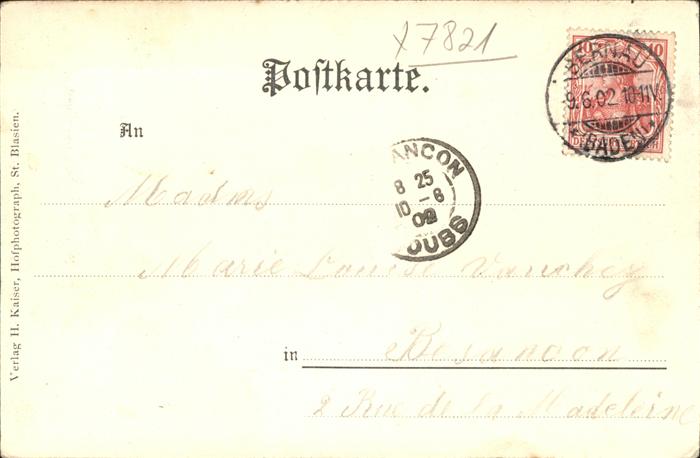 x 7821
Postkarte.
10 10
BERNAU
9.6.02 10-11V.
* (BADEN) *
An
ANCON
8 25
10 - 6
02
DOUBS
Madms
Marie Louise Vauchez
in Besançon
2 Rue de la Madeleine
Verlag H. Kaiser, Hofphotograph, St. Blasien.